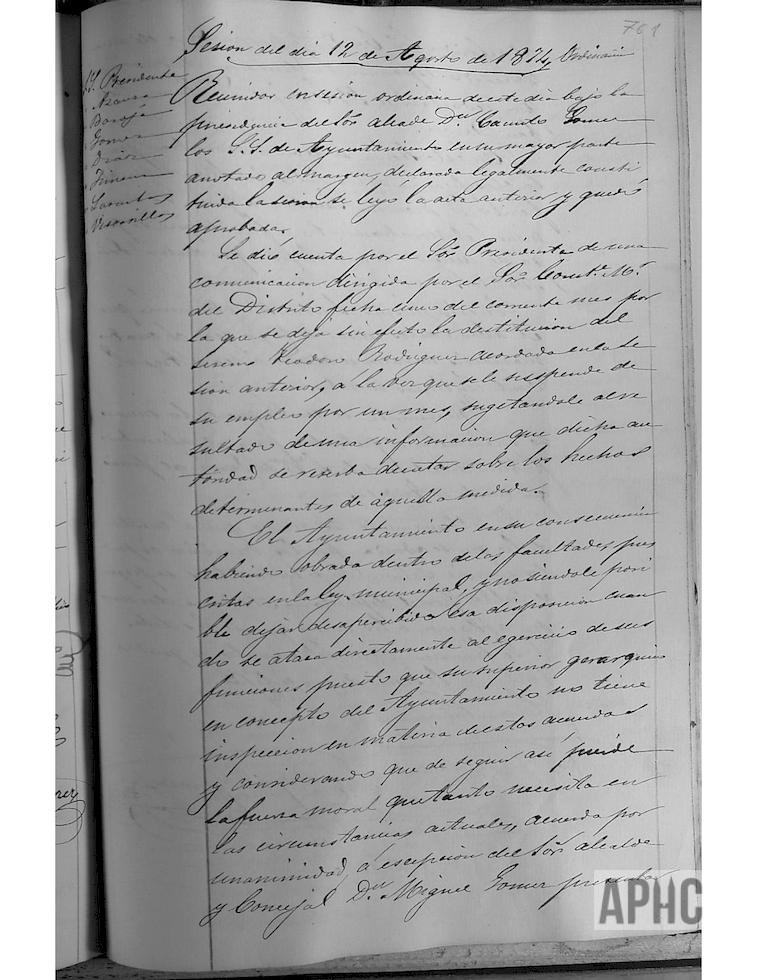 761
Sesion del dia 12 de Agosto de 1874, Ordinaria
S.S. Presidente
Azaura
Gomez
Diaz
Reunidos en sesion ordinaria de este dia bajo la
presidencia del Sor. alcalde Dn. Camilo Gomez
los S.S. de Ayuntamiento en su mayor parte
anotados al margen, declarada legalmente consti
tuida la sesion se leyó la acta anterior y quedó
aprobada.
Se dió cuenta por el Sor. Presidente de una
comunicacion dirigida por el Sor. Comte. Mr.
del Distrito fecha cinco del corriente mes por
la que se deja sin efecto la destitucion del
sereno Teodoro Rodriguez acordada en la se
sion anterior, a la vez que se le suspende de
su empleo por un mes, sugetandole al re
sultado de una informacion que dicha au
toridad se reserba decretar sobre los hechos
determinantes de aquella medida.
El Ayuntamiento en su consecuencia
habiendo obrado dentro de las facultades pres
critas en la ley municipal, y no siendole posi
ble dejar desapercibida esa disposicion cuan
do se ataca directamente al egercicio de sus
funciones puesto que su superior gerarquico
en concepto del Ayuntamiento no tiene
inspeccion en materia de estos acuerdos
y considerando que de seguir así pierde
la fuerza moral que tanto necesita en
las circunstancias actuales, acuerda por
unanimidad, a escepcion del Sor. alcalde
y Concejal Dn. Miguel Gomez presentar
APHC